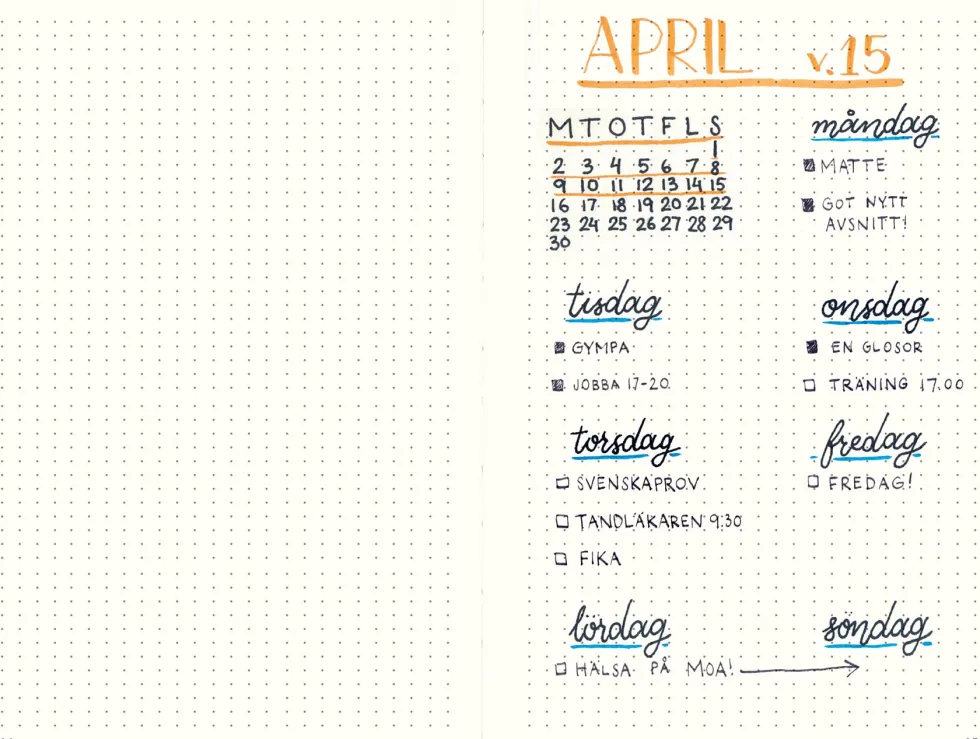 APRIL v.15
M T O T F L S
1
2 3 4 5 6 7 8
9 10 11 12 13 14 15
16 17 18 19 20 21 22
23 24 25 26 27 28 29
30
måndag
MATTE
GOT NYTT
AVSNITT!
tisdag
GYMPA
JOBBA 17-20
onsdag
EN GLOSOR
TRÄNING 17.00
torsdag
SVENSKAPROV
TANDLÄKAREN 9:30
FIKA
fredag
FREDAG!
lördag
HÄLSA PÅ MOA!
söndag